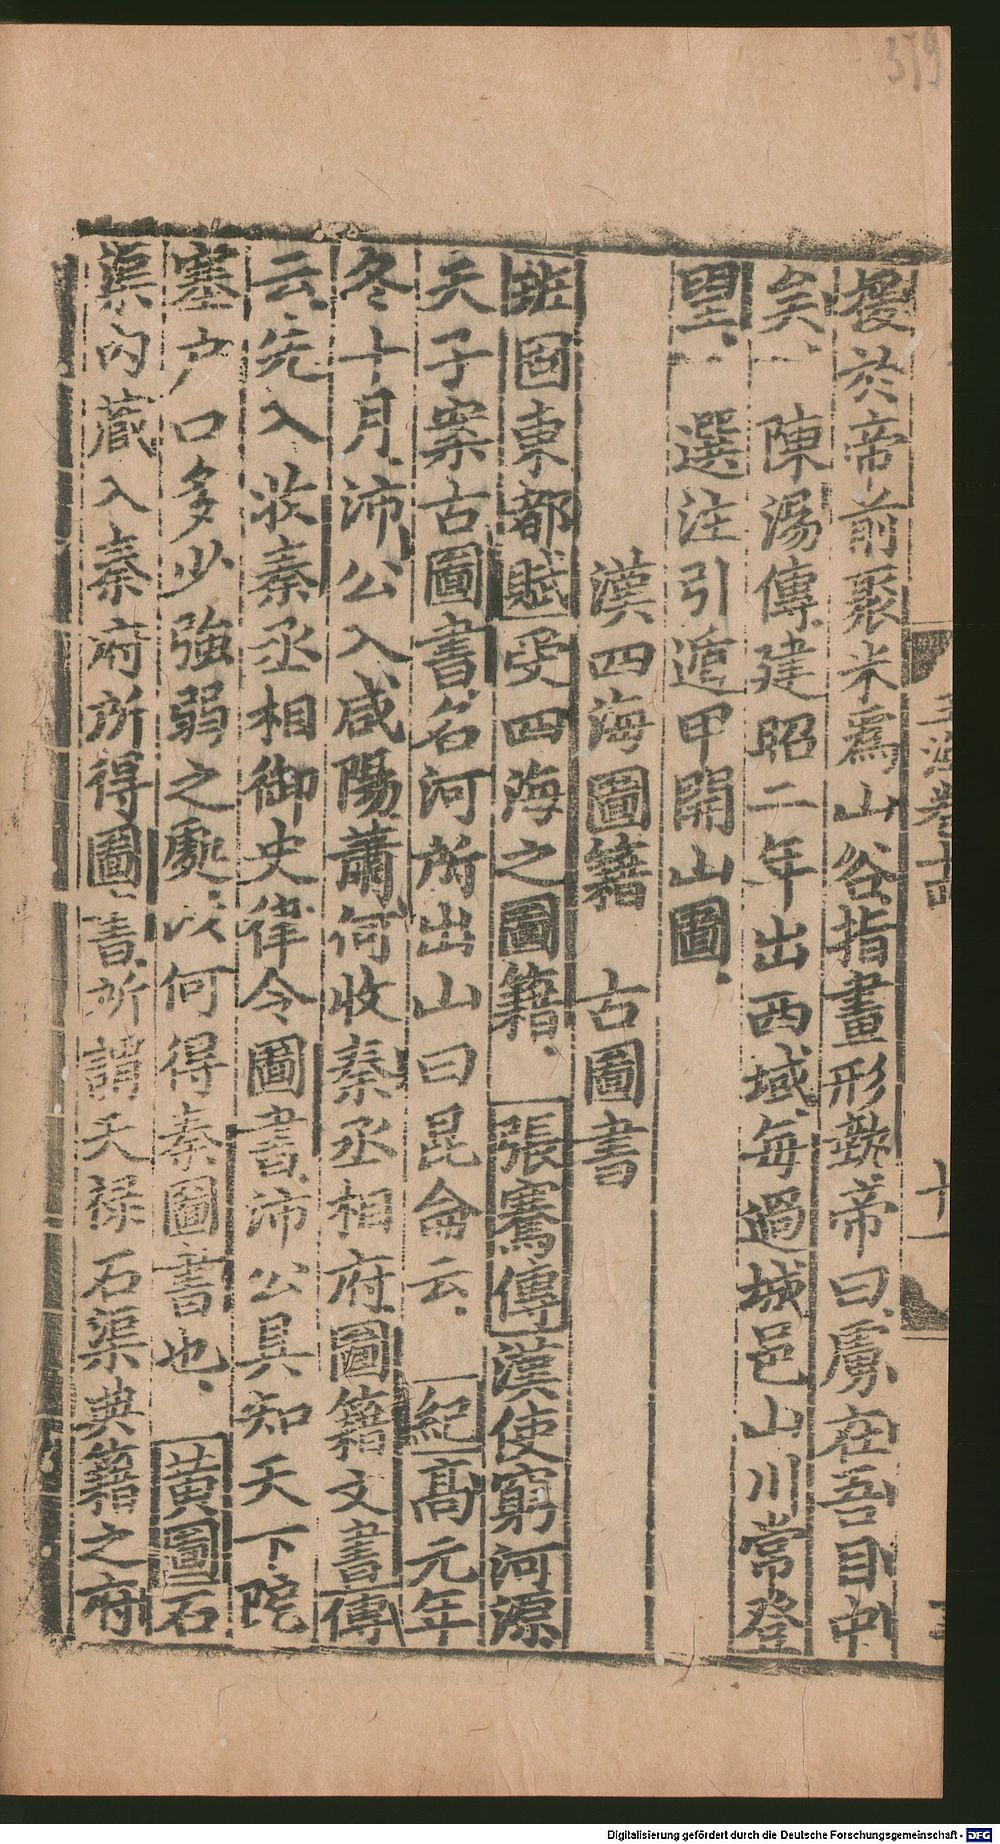 擾於帝前聚米爲山谷指畫形埶帝曰虜在吾目中
矣 陳湯傳建昭二年出西域每過城邑山川常登
望 選注引遁甲開山圖
漢四海圖籍 古圖書
班固東都賦受四海之圖籍 張騫傳漢使窮河源
天子案古圖書名河所出山曰昆侖云 紀高元年
冬十月沛公入咸陽蕭何收秦丞相府圖籍文書傳
云先入收秦丞相御史律令圖書沛公具知天下阸
塞户口多少強弱之處以何得秦圖書也 黄圖石
渠内藏入秦府所得圖書所謂天禄石渠典籍之府
十一
379
Digitalisierung gefördert durch die Deutsche Forschungsgemeinschaft - DFG